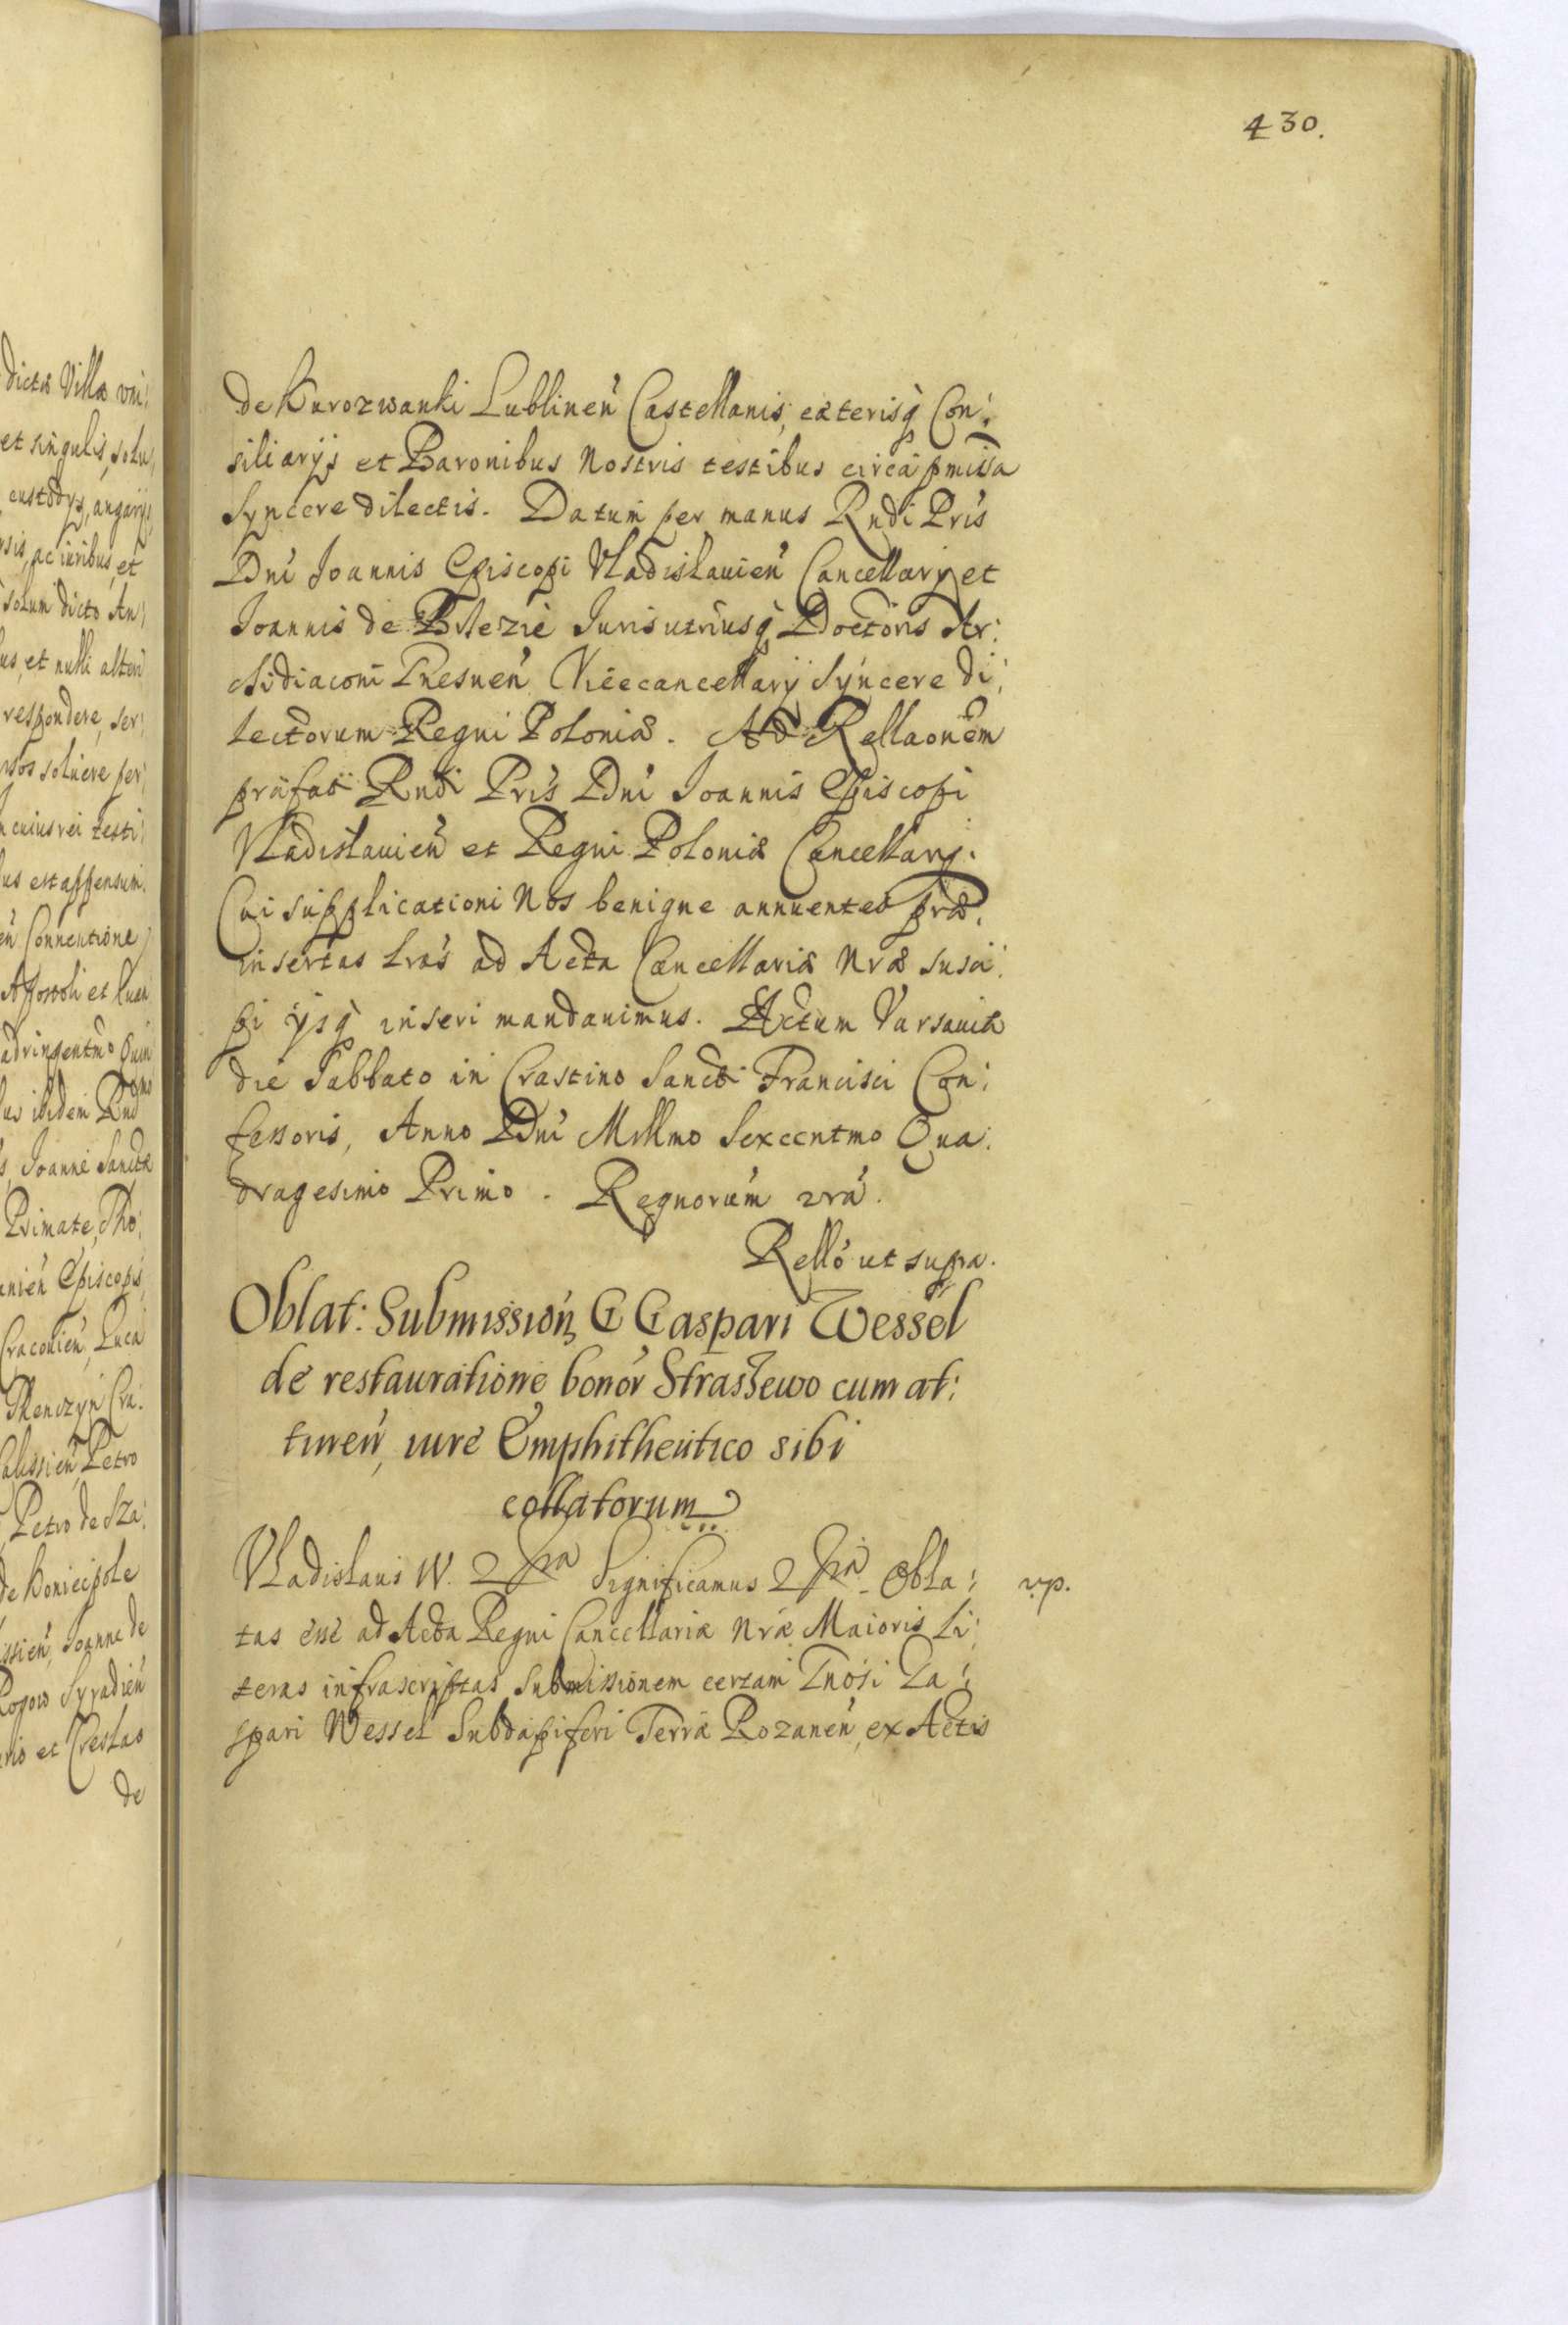 430.
dictæ Villæ vni:
et singulis, solu:
custodijs, angarijs,
ac iuribus, et
solum dicto An:
et nulli alteri
respondere, ser:
solvere per:
cuius rei testi:
est appensum.
Conuentione
Apostoli et Euan
adringentmo Quin
ibidem Rnd
Joanne Sanctæ
Primate, Tho:
Episcopis
Cracouien̄, Luca
Thenczyn Cra:
Petro
Petro de Sza:
de Koniecpole
Joanne de
Syradien̄
et Creslao
de
de Kurozwanki Lublinen̄ Castellanis, cæterisq̨ Con:
siliarijs et Baronibus Nostris testibus circa pmissa
syncere dilectis. Datum per manus Rndi Pris
Dni Joannis Episcopi Vladislauien̄ Cancellarij et
Joannis de Brzezie Juris utriusq̨ Doctoris Ar:
chidiaconi Gnesnen̄ Vicecancellarij Syncere di:
lectorum Regni Poloniæ. Ad Rellaonem
præfati Rndi Pris Dni Joannis Episcopi
Vladislauien̄ et Regni Poloniæ Cancellarij.
Cui supplicationi Nos benigne annuentes præ:
insertas Lras ad Acta Cancellariæ Nræ susci:
pi ijsq̨ inseri mandauimus. Actum Varsauiæ
die Sabbato in Crastino Sancti Francisci Con:
fessoris, Anno Dni Millmo Sexcentmo Qua:
dragesimo Primo. Regnorum nrā.
Rello ut supra.
Oblat: Submission̄ G Gaspari Wessel
de restauratione bonor Straszewo cum at:
tinen̄, iure Emphitheutico sibi
collatorum
Vladislaus IV. Significamus Obla:
vp.
tas esse ad Acta Regni Cancellariæ Nræ Maioris Li:
teras infrascriptas submissionem certam Gnosi Ga:
spari Wessel Subdapiferi Terræ Rozanen̄, ex Actis